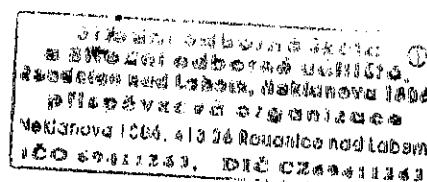 Střední odborná škola ①
a Střední odborné učiliště,
Roudnice nad Labem, Neklanova 1806
příspěvková organizace
Neklanova 1806, 413 26 Roudnice nad Labem
IČO 69411343, DIČ CZ69411343